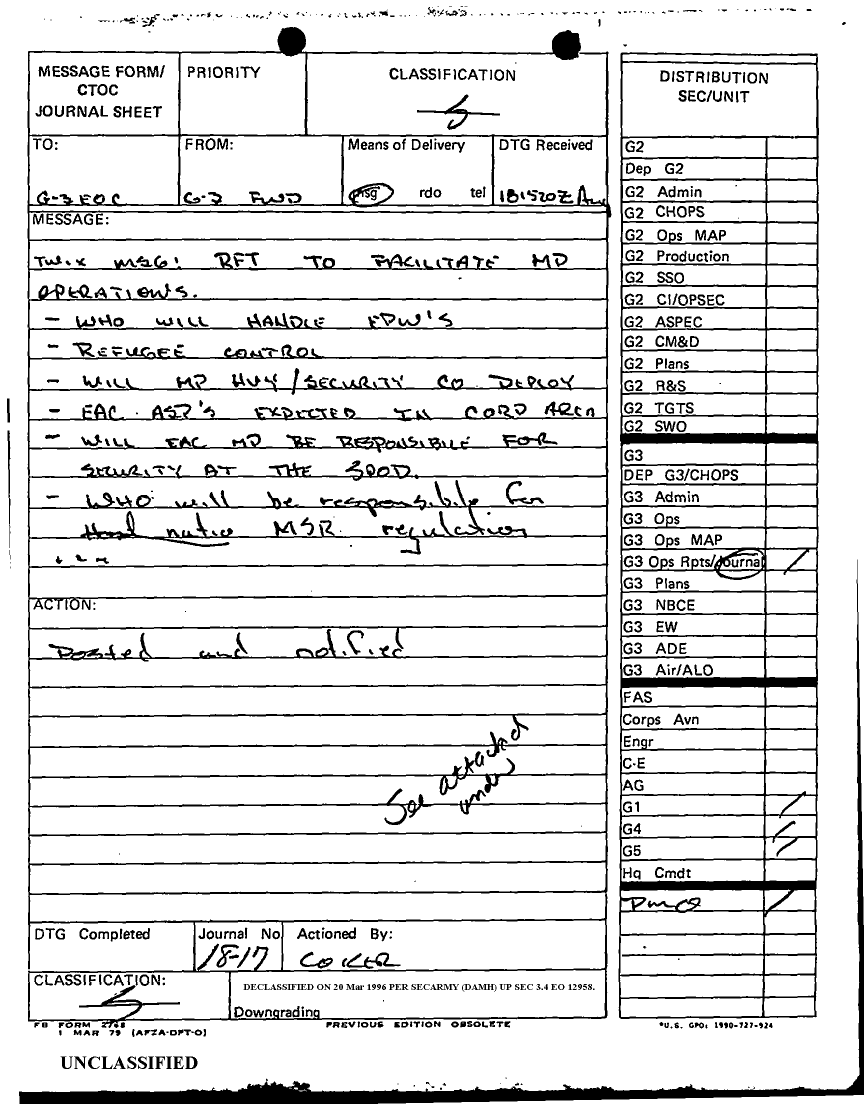 MESSAGE FORM/
CTOC
JOURNAL SHEET
PRIORITY
CLASSIFICATION
S
TO:
G-3 EOC
FROM:
G-3 FWD
Means of Delivery
msg rdo tel
DTG Received
181520Z Aug
MESSAGE:
TWIX MSG: RFI TO FACILITATE MP
OPERATIONS.
- WHO WILL HANDLE EPW'S
- REFUGEE CONTROL
- WILL MP HVY/SECURITY CO DEPLOY
- EAC ASP'S EXPECTED IN CORP AREA
- WILL EAC MP BE RESPONSIBILE FOR
SECURITY AT THE SPOD.
- WHO will be responsibile for
Host natio MSR regulation
ACTION:
Posted and notified
See attached
under
DTG Completed
Journal No
18-17
Actioned By:
COKER
CLASSIFICATION:
S
DECLASSIFIED ON 20 Mar 1996 PER SECARMY (DAMH) UP SEC 3.4 EO 12958.
Downgrading
FB FORM 2768
1 MAR 79 (AFZA-DPT-O)
PREVIOUS EDITION OBSOLETE
UNCLASSIFIED
DISTRIBUTION
SEC/UNIT
G2
Dep G2
G2 Admin
G2 CHOPS
G2 Ops MAP
G2 Production
G2 SSO
G2 CI/OPSEC
G2 ASPEC
G2 CM&D
G2 Plans
G2 R&S
G2 TGTS
G2 SWO
G3
DEP G3/CHOPS
G3 Admin
G3 Ops
G3 Ops MAP
G3 Ops Rpts/Journal
G3 Plans
G3 NBCE
G3 EW
G3 ADE
G3 Air/ALO
FAS
Corps Avn
Engr
C-E
AG
G1
G4
G5
Hq Cmdt
*U.S. GPO: 1990-727-924